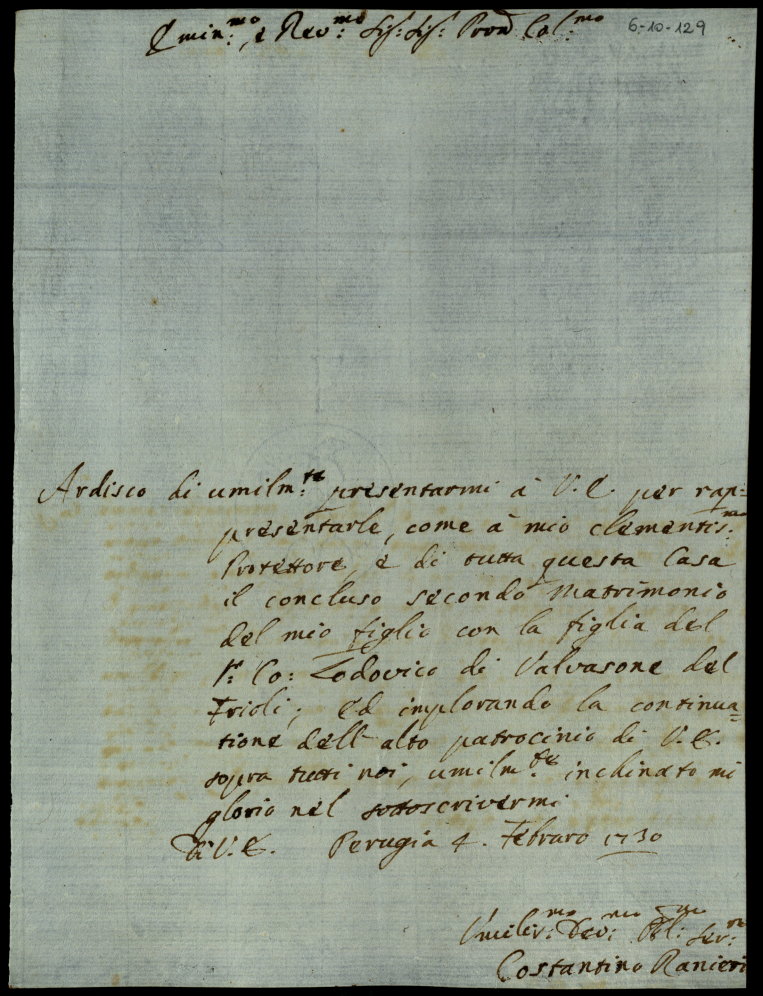 Emin:mo, e Rev:mo Sig: Sig: Pron Col:mo 6-10-129
Ardisco di umilm:te presentarmi à V.E. per rap=
presentarle, come à mio clementis:mo
Protettore, e di tutta questa Casa
il concluso secondo Matrimonio
del mio figlio con la figlia del
Sr: Co: Lodovico di Valvasone del
Frioli; Ed implorando la continua=
tione dell'alto patrocinio di V.E.
sopra tutti noi, umilm:te inchinato mi
glorio nel sottoscrivermi
Di V.E. Perugia 4. Febraro 1730
Umilis:mo Dev:mo Obl:mo Ser:re
Costantino Ranieri